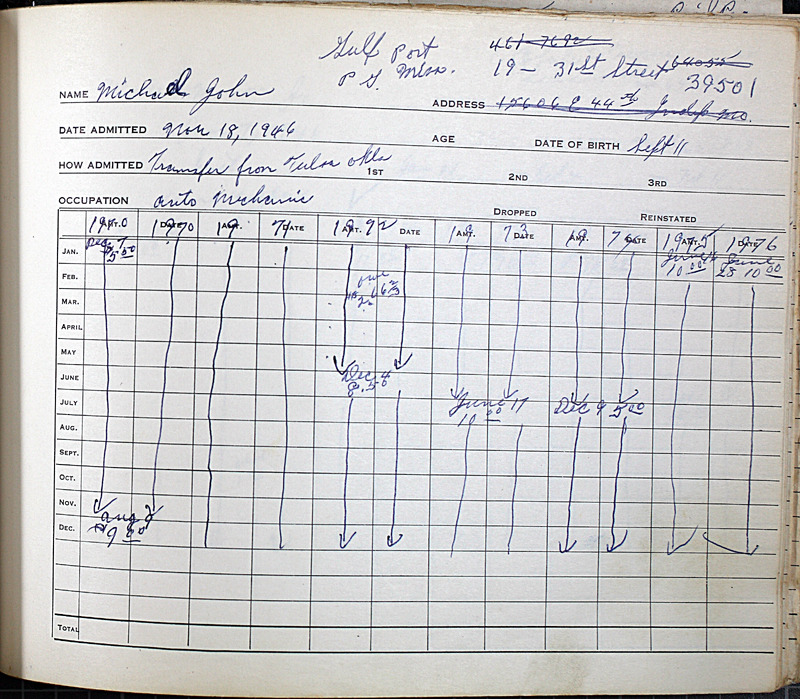 Gulf Port 461-7692
P S. Miss. 19 - 31st Street 64055
39501
NAME Michael John ADDRESS 15606 E 44th Indep Mo.
DATE ADMITTED Nov 18, 1946 AGE DATE OF BIRTH Sept 11
HOW ADMITTED Transfer from Tulsa Okla 1ST 2ND 3RD
OCCUPATION auto Mechanic
DROPPED REINSTATED
AMT. DATE AMT. DATE AMT. DATE AMT. DATE AMT. DATE AMT. DATE
1970 1970 19 71 19 72 19 73 19 1975 1976
JAN. Dec 7 5.00 June 16 10 00 June 25 10 00
FEB. owe
MAR.
APRIL
MAY
JUNE Dec 4 8.50
JULY June 11 10 00 Dec 9 5 00
AUG.
SEPT.
OCT.
NOV.
DEC. Aug 2
TOTAL